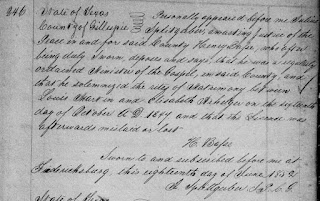 246 State of Texas Personally appeared before me Antone
County of Gillespie Splitgerber, an acting Justice of the
Peace in and for said County Henry Basse, who after
being duly sworn, deposes and says, that he is a regularly
ordained Minister of the Gospel, in said County, and
that he solemnized the rites of Matrimony between
Louis Martin and Elisabeth on the
day of October A.D. 1849 and that the License was
afterwards mislaid or lost
H. Basse
Sworn to and subscribed before me at
Fredericksburg, this eighteenth day of June 1852
A. Splitgerber J.P.C.G.
State of Texas